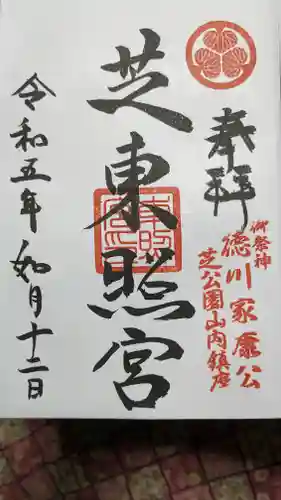 奉拝
御祭神
徳川家康公
芝公園山内鎮座
芝東照宮
令和五年如月十二日